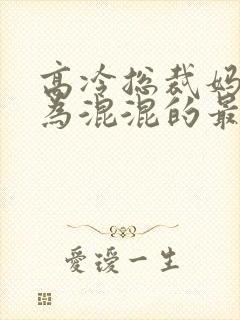 高冷总裁妈
为混混的最
爱瑗一生